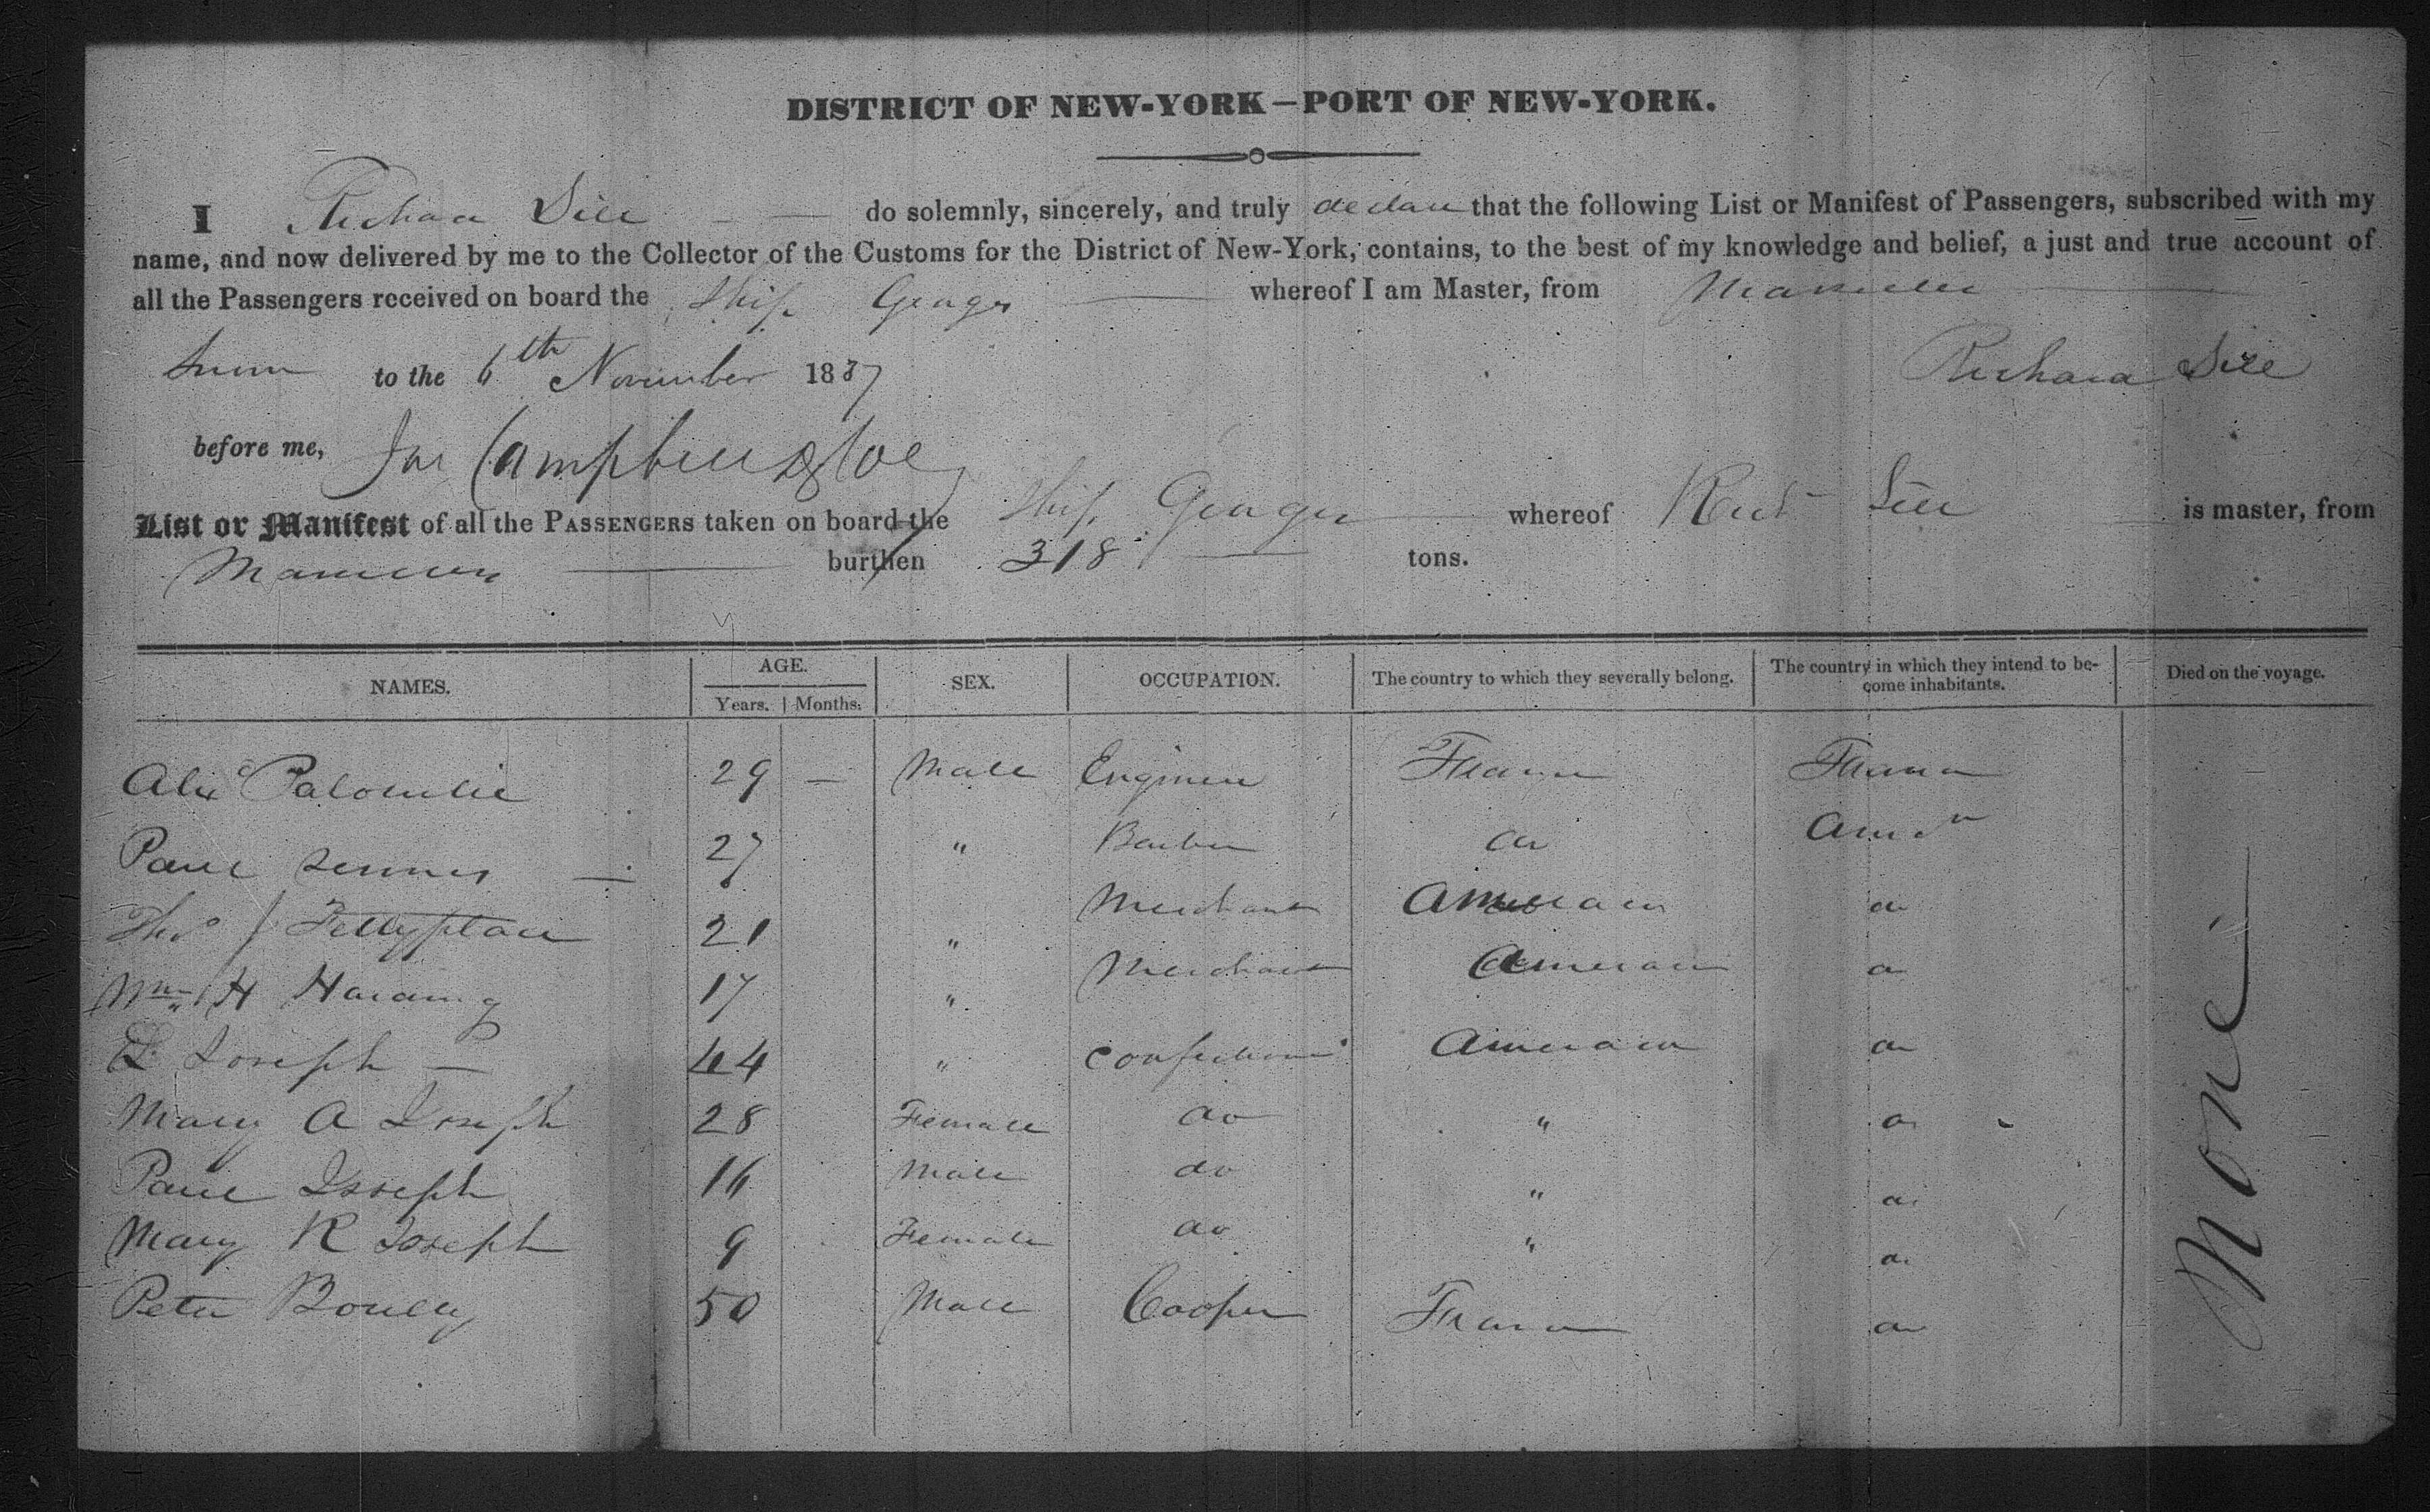 DISTRICT OF NEW-YORK—PORT OF NEW-YORK.
I Richard Sill do solemnly, sincerely, and truly declare that the following List or Manifest of Passengers, subscribed with my
name, and now delivered by me to the Collector of the Customs for the District of New-York, contains, to the best of my knowledge and belief, a just and true account of
all the Passengers received on board the Ship whereof I am Master, from Marseilles
Sworn to the 6th November 1837 Richard Sill
before me, Campbell
List or Manifest of all the PASSENGERS taken on board the Ship whereof Richd Sill is master, from
Marseilles burthen 318 tons.
NAMES. AGE. SEX. OCCUPATION. The country to which they severally belong. The country in which they intend to be-
come inhabitants. Died on the voyage.
Years. Months.
29 — Male Engineer France France
Paul 27 " Barber do
Thos J Fettyplace 21 " Merchant American do
Wm H Harding 17 " Merchant American do
Joseph — 44 " American do
Mary A Joseph 28 Female do " do
Paul Joseph 16 Male do " do
Mary R Joseph 9 Female do " do
Peter 50 Male Cooper France do
None